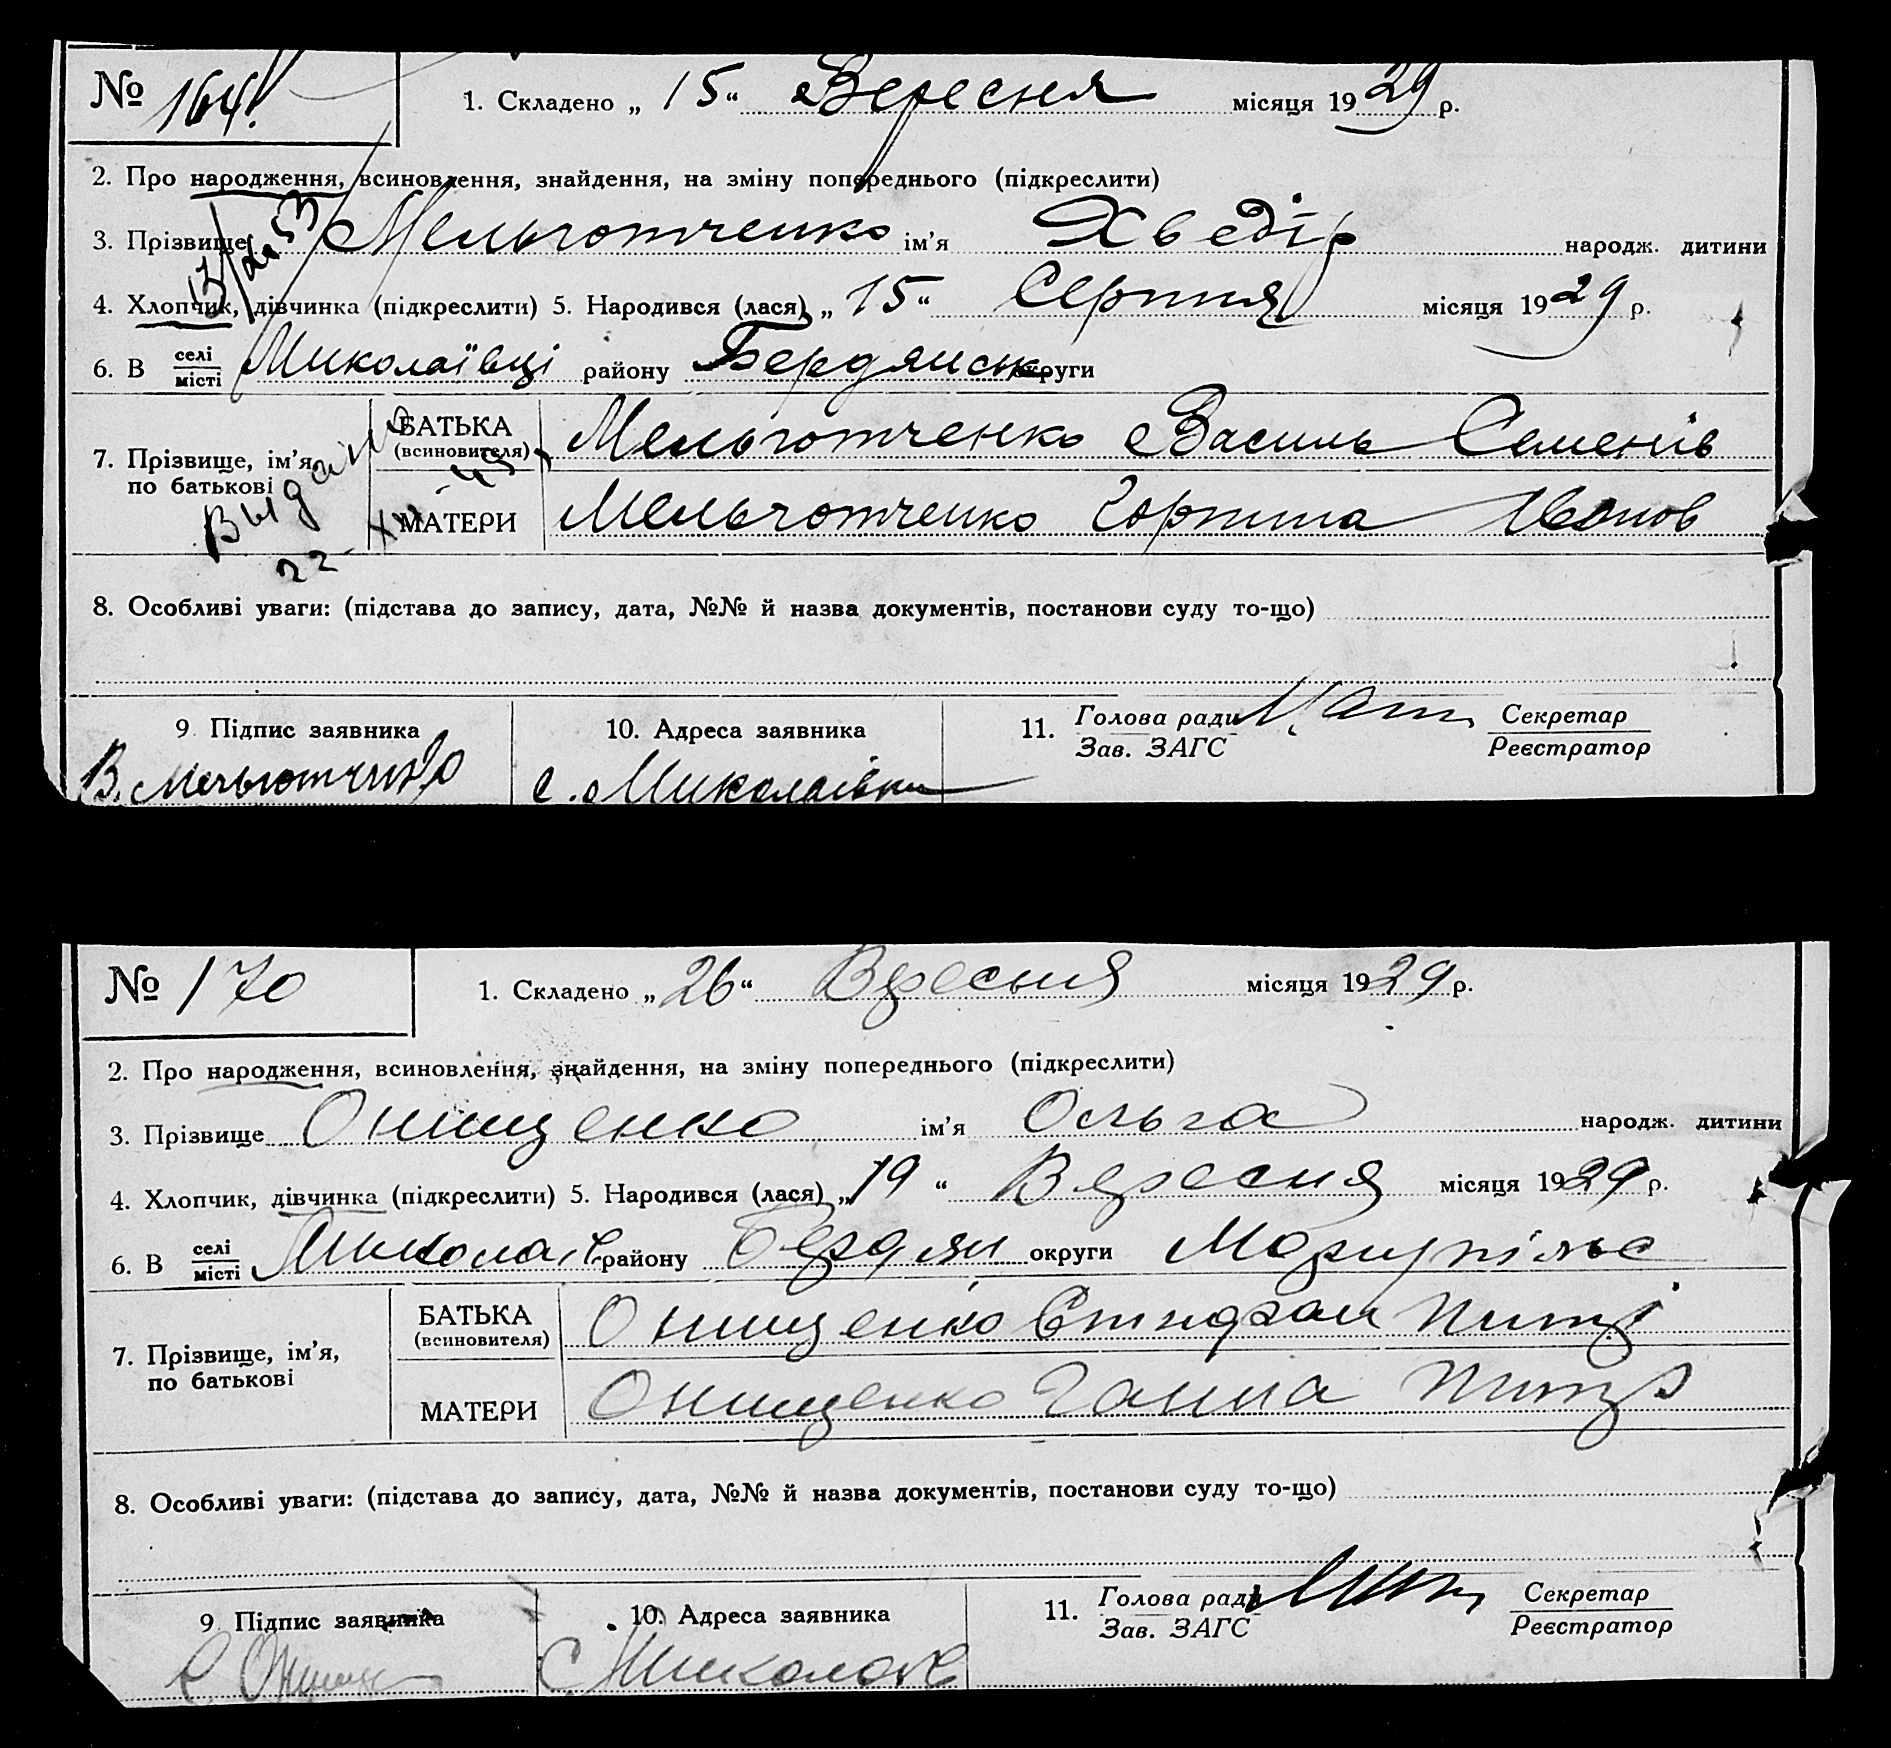 № 164 1. Складено „ 15 “ Вересня місяця 19 29 р.
2. Про народження, всиновлення, знайдення, на зміну попереднього (підкреслити)
3. Прізвище Мельготченко ім’я Хведір народж. дитини
4. Хлопчик, дівчинка (підкреслити) 5. Народився (лася) „ 15 “ Серпня місяця 19 29 р.
6. В селі місті Миколаївці району Бердянськ округи
7. Прізвище, ім’я, по батькові
БАТЬКА (всиновителя) Мельготченко Василь Семенів
МАТЕРИ Мельготченко Горпина Іванов
Выдано
22-XII-45
8. Особливі уваги: (підстава до запису, дата, №№ й назва документів, постанови суду то-що)
9. Підпис заявника 10. Адреса заявника 11. Голова ради Зав. ЗАГС Секретар Реєстратор
В. Мельготченко с. Миколаївки
№ 170 1. Складено „ 26 “ Вересня місяця 19 29 р.
2. Про народження, всиновлення, знайдення, на зміну попереднього (підкреслити)
3. Прізвище Онищенко ім’я Ольга народж. дитини
4. Хлопчик, дівчинка (підкреслити) 5. Народився (лася) „ 19 “ Вересня місяця 19 29 р.
6. В селі місті Миколаїв району Бердян округи Маріупільс
7. Прізвище, ім’я, по батькові
БАТЬКА (всиновителя) Онищенко
МАТЕРИ Онищенко Ганна
8. Особливі уваги: (підстава до запису, дата, №№ й назва документів, постанови суду то-що)
9. Підпис заявника 10. Адреса заявника 11. Голова ради Зав. ЗАГС Секретар Реєстратор
с. Миколаїв